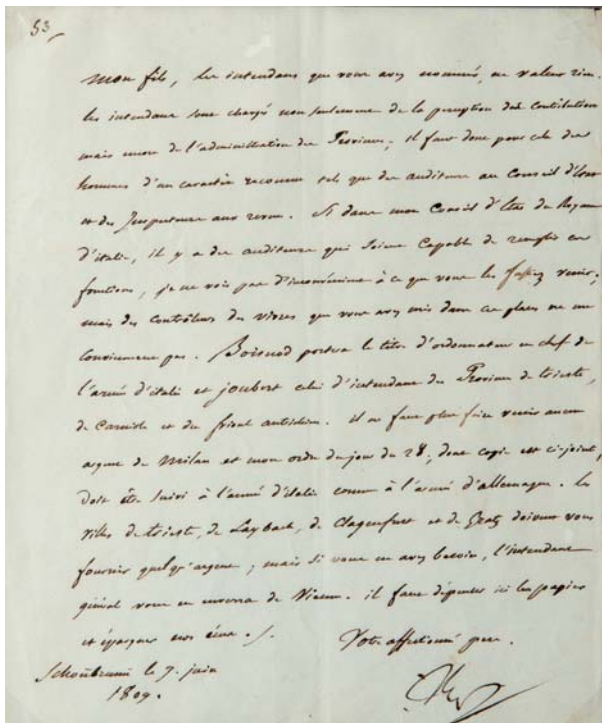 53
Mon fils, les intendans que vous avez nommés, ne valent rien.
les intendans sont chargés non seulement de la perception des contributions
mais encore de l'administration des Provinces; il faut donc pour cela des
hommes d'un caractère reconnu tel que des auditeurs au Conseil d'Etat
et des Inspecteurs aux revues. Si dans mon Conseil d'Etat du Royaume
d'italie, il y a des auditeurs qui soient capables de remplir ces
fonctions, je ne vois pas d'inconvénient à ce que vous les fassiez venir;
mais des contrôleurs des vivres que vous avez mis dans ces places ne me
conviennent pas. Boisnod portera le titre d'ordonnateur en chef de
l'armée d'italie et joubert celui d'intendant des Provinces de trieste,
de Carniole et du frioul autrichien. il ne faut plus faire venir aucun
argent de Milan et mon ordre du jour du 28, dont copie est ci-joint,
doit être suivi à l'armée d'italie comme à l'armée d'allemagne. les
villes de trieste, de Laybach, de Clagenfurt et de Gratz doivent vous
fournir quelqu'argent; mais si vous en avez besoin, l'intendant
général vous en enverra de Vienne. il faut dépenser ici les papiers
et épargner nos écus. /.
Votre affectionné père.
Schoënbrunn le 7. juin
1809.